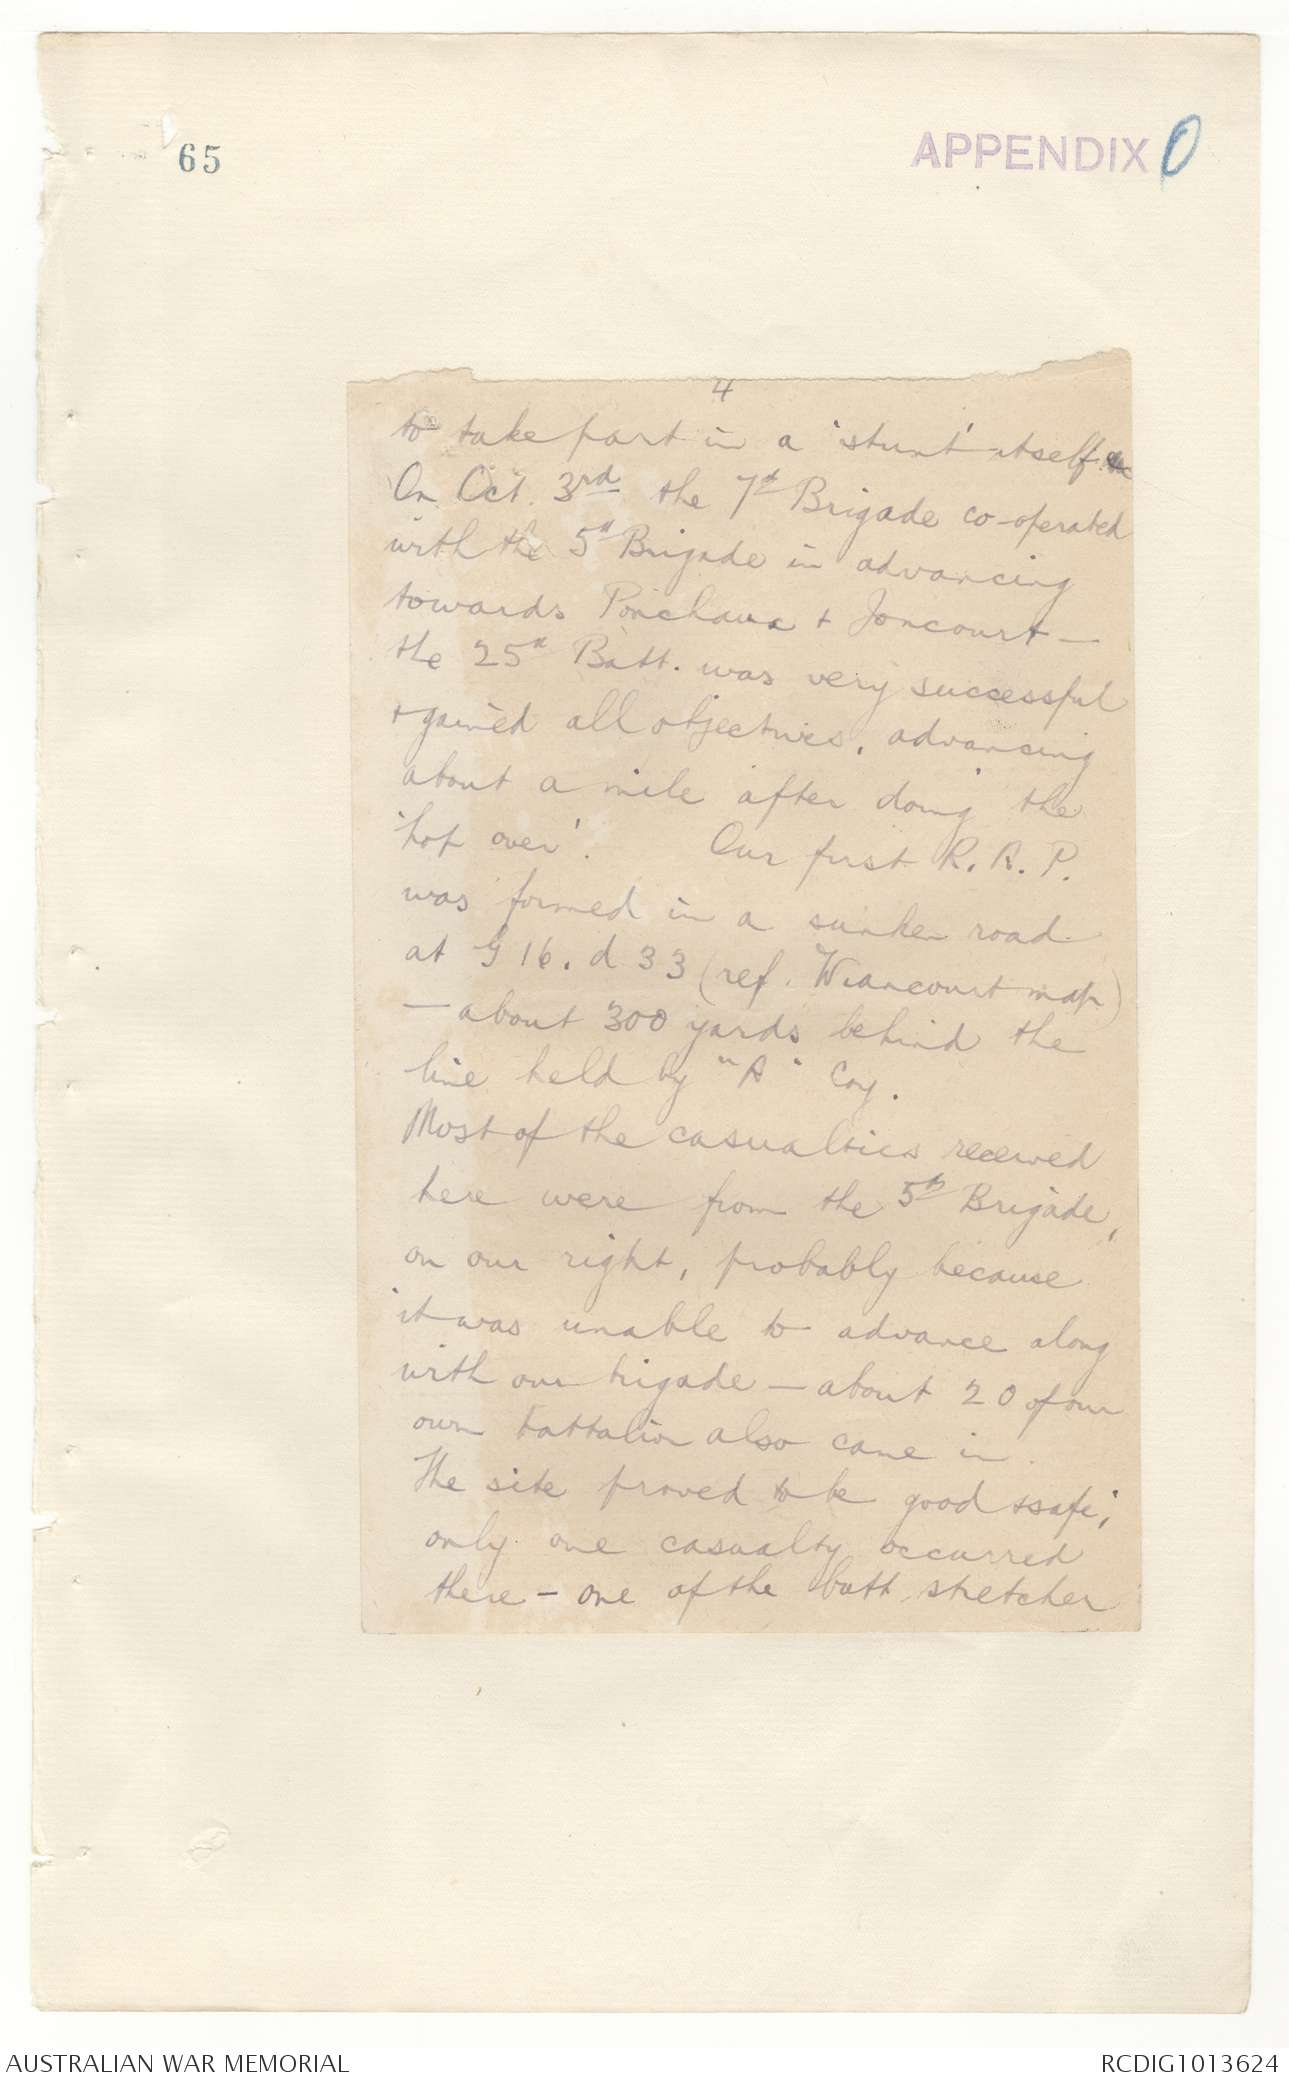 65
APPENDIX O
4
to take part in a 'stunt' itself.
On Oct. 3rd the 7th Brigade co-operated
with the 5th Brigade in advancing
towards Ponchaux + Joncourt —
the 25th Batt. was very successful
+ gained all objectives, advancing
about a mile after doing the
'hop over'. Our first R.A.P.
was formed in a sunken road
at G 16. d 33 (ref. Wiancourt map)
— about 300 yards behind the
line held by "A" Coy.
Most of the casualties received
here were from the 5th Brigade,
on our right, probably because
it was unable to advance along
with our brigade — about 20 of our
own battalion also came in.
The site proved to be good + safe;
only one casualty occurred
there — one of the batt. stretcher
AUSTRALIAN WAR MEMORIAL
RCDIG1013624